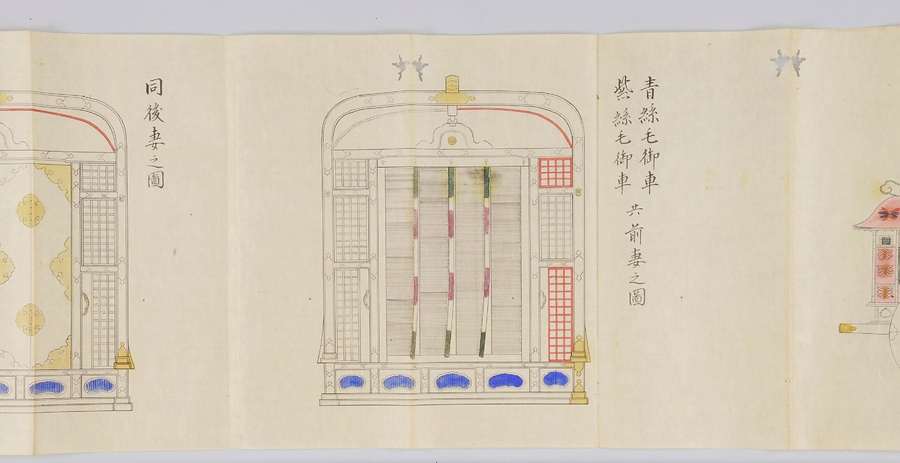 青絲毛御車
紫絲毛御車
共前妻之圖
同後妻之圖